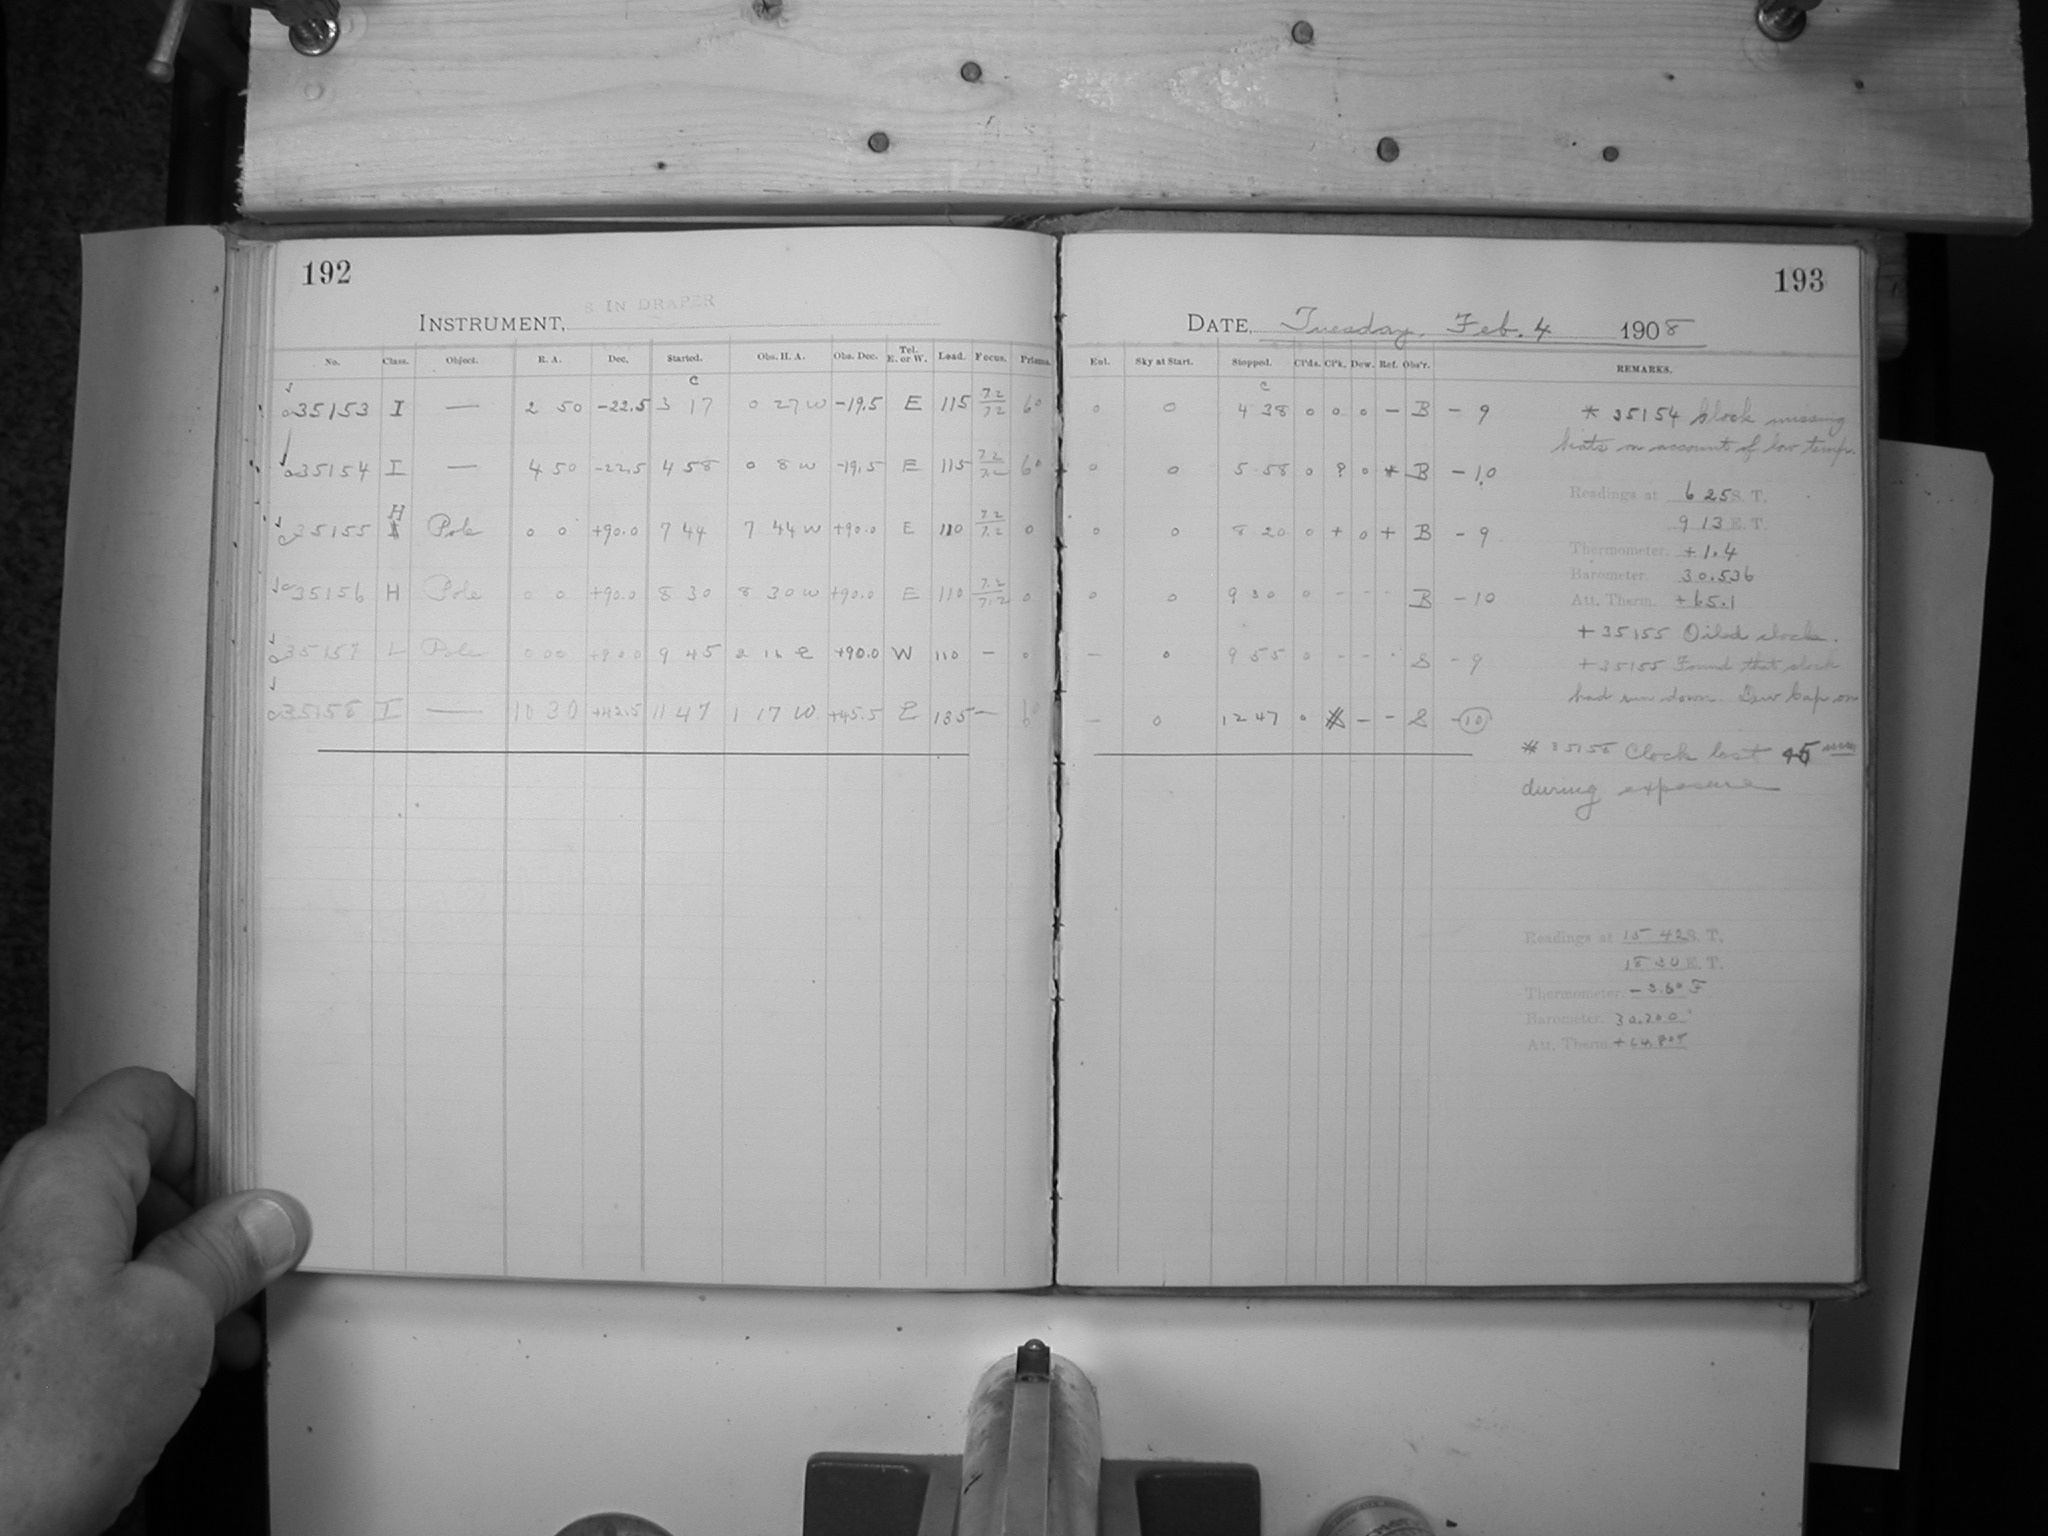 192
8 IN DRAPER
INSTRUMENT,
No. Class. Object. R. A. Dec. Started. Obs. H. A. Obs. Dec. Tel. E. or W. Load. Focus. Prisms.
C
35153 I — 2 50 -22.5 3 17 0 27 W -19.5 E 115 7.2/7.2 6°
35154 I — 4 50 -22.5 4 58 0 8 W -19.5 E 115 7.2/7.2 6°
H
35155 Pole 0 0 +90.0 7 44 7 44 W +90.0 E 110 7.2/7.2 0
35156 H Pole 0 0 +90.0 8 30 8 30 W +90.0 E 110 7.2/7.2 0
35157 L Pole 0 00 +90.0 9 45 E +90.0 W 110 — 0
35158 I — 10 30 +42.5 11 47 1 17 W +45.5 E 135 —
193
DATE, Tuesday, Feb. 4 1908
Exl. Sky at Start. Stopped. Cl'ds. Cl'k. Dew. Ref. Obs'r. REMARKS.
C
0 0 4 38 0 0 0 — B - 9
0 0 5 58 0 ? 0 * B - 10
0 0 8 20 0 + 0 + B - 9
0 0 9 30 0 - - - B - 10
— 0 9 55 0 - - - S - 9
— 0 12 47 0 — — S - 10
* 35154 Clock missing
beats on account of low temp.
Readings at 6 25 S. T.
9 13 E. T.
Thermometer. +1.4
Barometer 30.536
Att. Therm. +65.1
+ 35155 Oiled clock.
+ 35155 Found that clock
had run down. Dew Cap on
# 35158 Clock lost 45 min
during exposure
Readings at 15 42 S. T.
E. T.
Thermometer. F
Barometer. 30.200
Att. Therm.